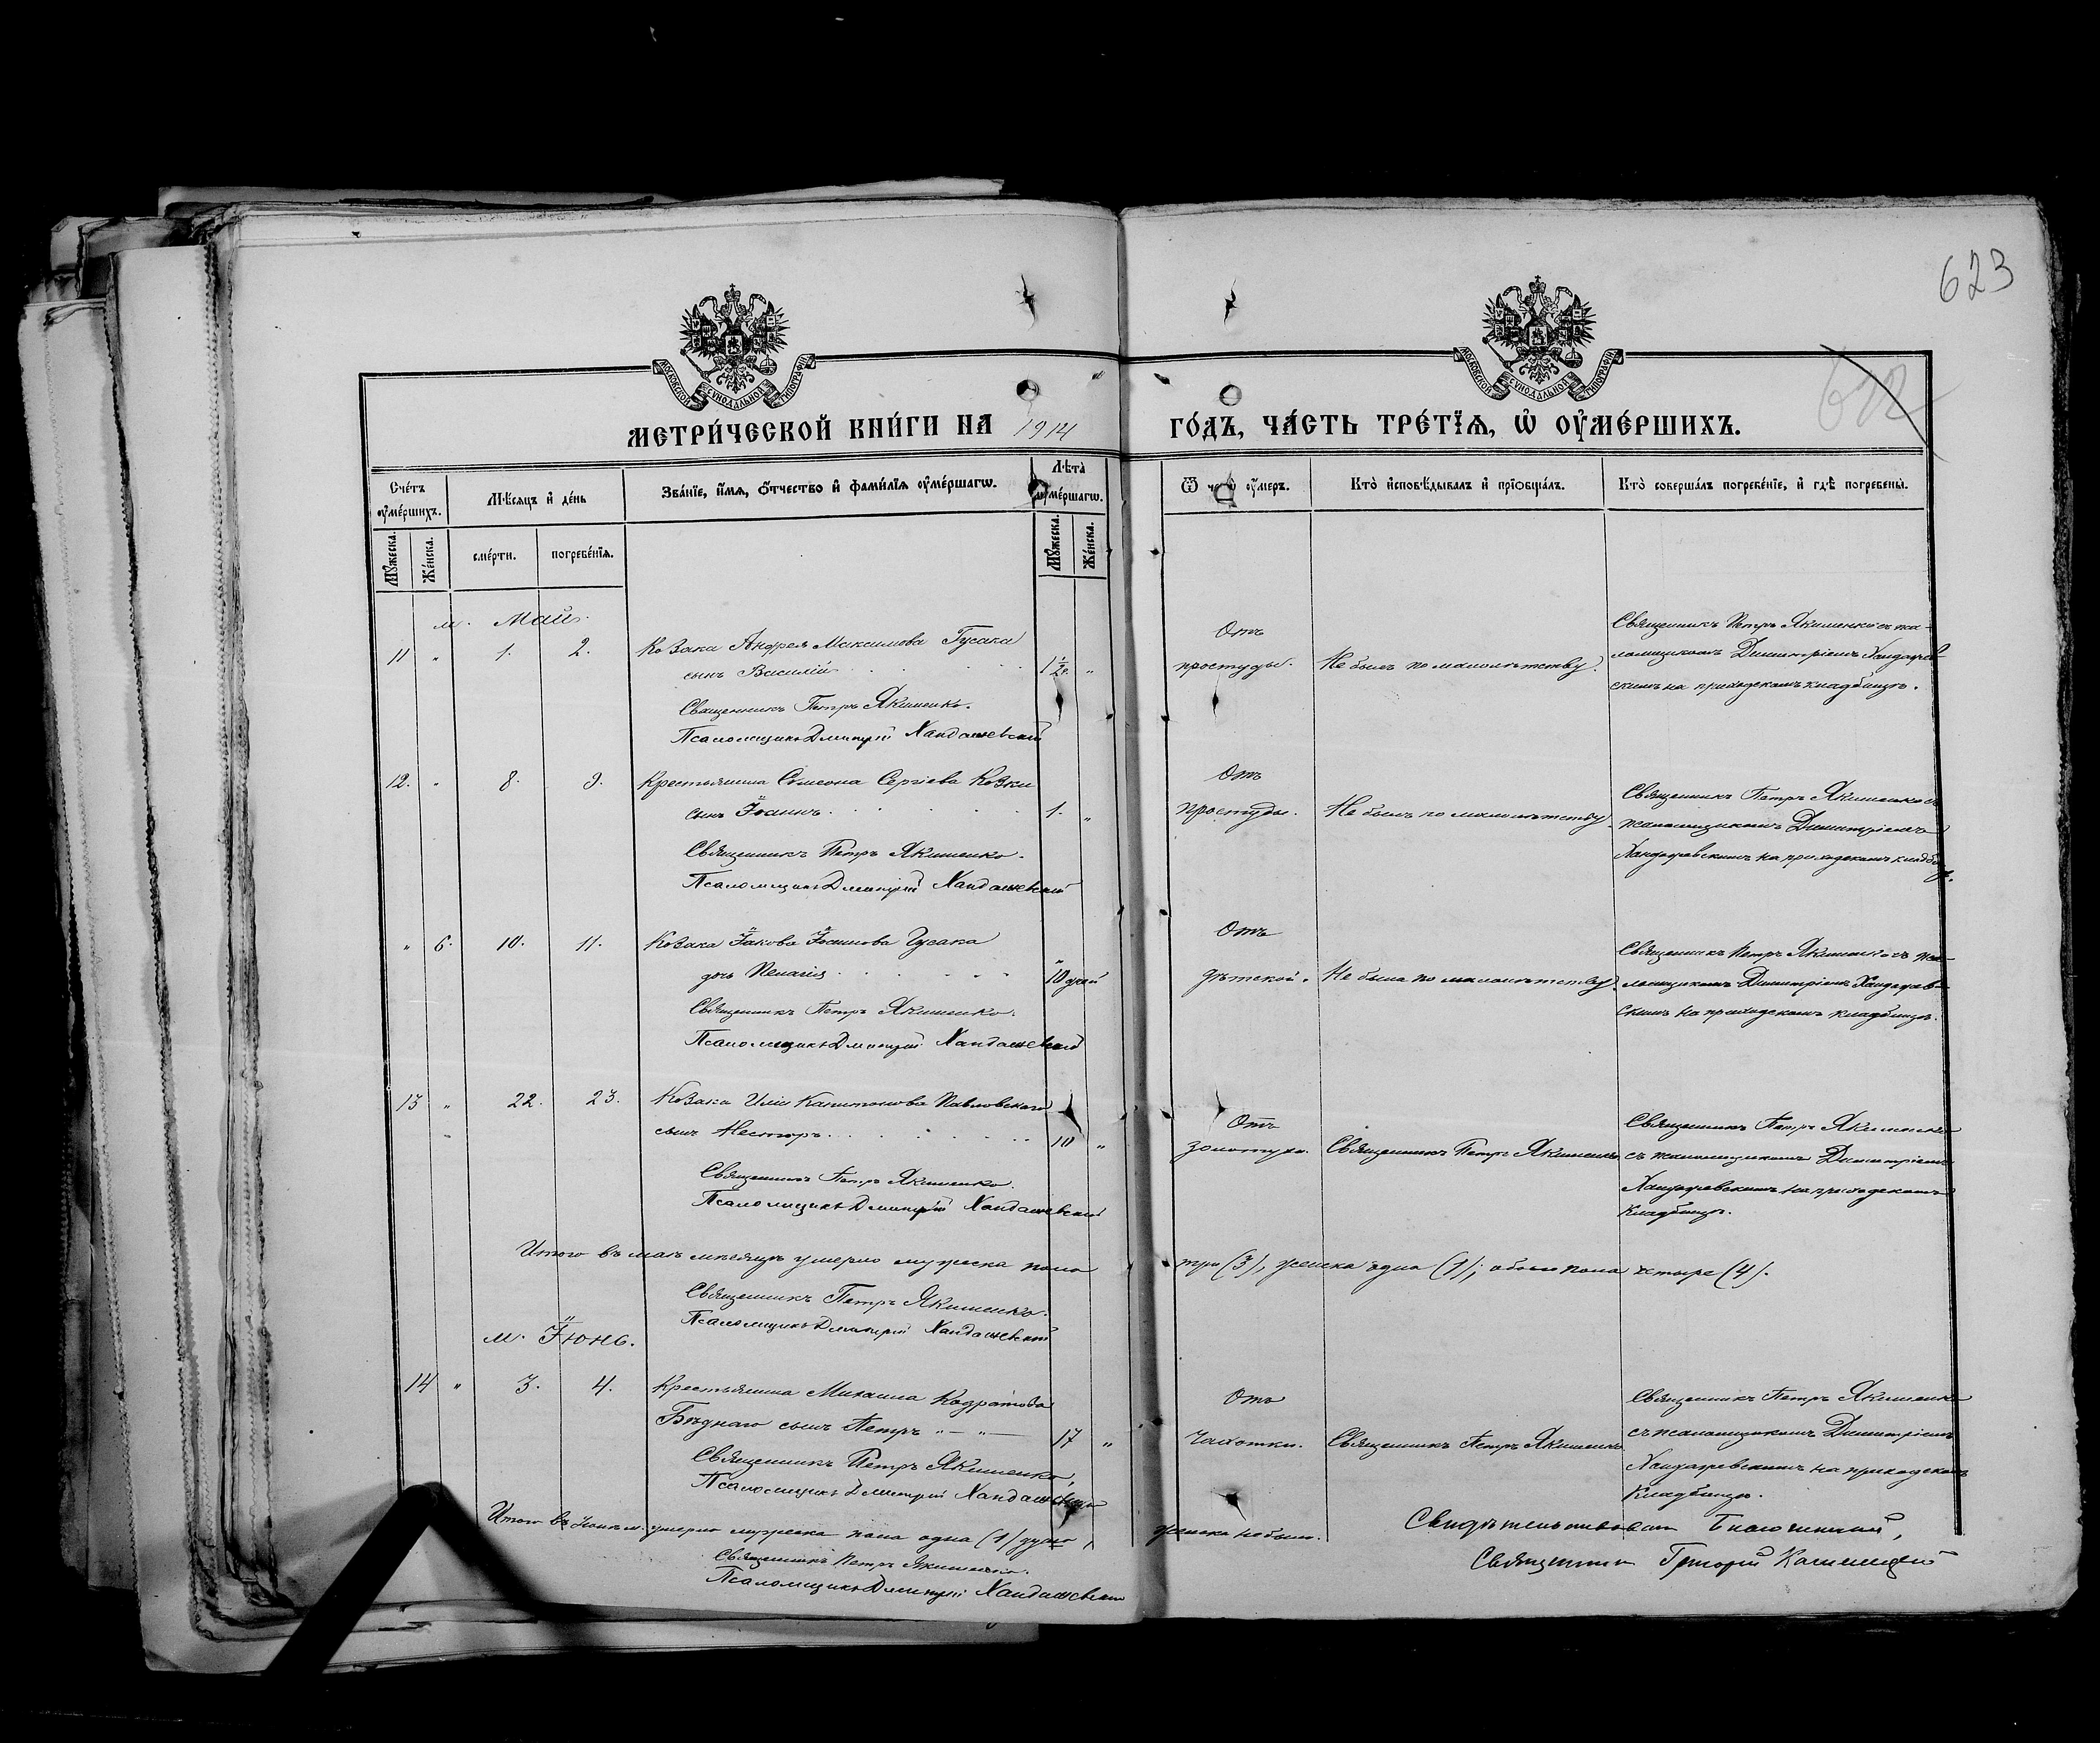 623
622
МОСКОВСКОЙ СѴНОДАЛЬНОЙ ТИПОГРАФІИ
МОСКОВСКОЙ СѴНОДАЛЬНОЙ ТИПОГРАФІИ
МЕТРИ́ЧЕСКОЙ КНИ́ГИ НА 1914 ГО́ДЪ, ЧА́СТЬ ТРЕ́ТЇѦ, Ѡ҆ ОУ҆МЕ́РШИХЪ.
Сче́тъ оу҆ме́ршихъ.
Мѣ́сяцъ и҆ де́нь
Зва́нїе, и҆́мѧ, ѻ҆́тчество и҆ фами́лїѧ оу҆ме́ршагѡ.
Лѣ́та оу҆ме́ршагѡ.
Ѿ чегѡ̀ оу҆́меръ.
Кто̀ и҆сповѣ́дывалъ и҆ прїѡбща́лъ.
Кто̀ соверша́лъ погребе́нїе, и҆ гдѣ̀ погребены̀.
Мꙋ́жеска. Же́нска. сме́рти. погребе́нїѧ. Мꙋ́жеска. Же́нска.
м. Май.
11 " 1. 2. Козака Андрея Максимова Гусака
сынъ Василій 1½. "
Священникъ Петръ Якименко.
Псаломщикъ Дмитрій Хандажевскій
Отъ
простуды. Не былъ по малолѣтству.
Священникъ Петръ Якименко съ пса-
ломщикомъ Димитріемъ Хандажев-
скимъ на приходскомъ кладбищѣ.
12. " 8. 9. Крестьянина Симеона Сергіева Козки
сынъ Іоаннъ 1. "
Священникъ Петръ Якименко.
Псаломщикъ Дмитрій Хандажевскій
Отъ
простуды. Не былъ по малолѣтству.
Священникъ Петръ Якименко съ
псаломщикомъ Димитріемъ
Хандажевскимъ на приходскомъ кладбищѣ.
" 6. 10. 11. Козака Іакова Іоаннова Гусака
дочь Пелагія " 10 дней
Священникъ Петръ Якименко.
Псаломщикъ Дмитрій Хандажевскій
Отъ
дѣтской. Не была по малолѣтству.
Священникъ Петръ Якименко съ пса-
ломщикомъ Димитріемъ Хандажев-
скимъ на приходскомъ кладбищѣ.
13 " 22. 23. Козака Иліи Капитонова Павловскаго
сынъ Несторъ 10 "
Священникъ Петръ Якименко.
Псаломщикъ Дмитрій Хандажевскій
Отъ
золотухи. Священникъ Петръ Якименко.
Священникъ Петръ Якименко
съ псаломщикомъ Димитріемъ
Хандажевскимъ на приходскомъ
кладбищѣ.
Итого въ маѣ мѣсяцѣ умерло мужеска пола три (3), женска одна (1); обоего пола четыре (4).
Священникъ Петръ Якименко.
Псаломщикъ Дмитрій Хандажевскій
м. Іюнь.
14 " 3. 4. Крестьянина Михаила Кодратова
Бѣднаго сынъ Петръ 17 "
Священникъ Петръ Якименко,
Псаломщикъ Дмитрій Хандажевскій
Отъ
чахотки. Священникъ Петръ Якименко
Священникъ Петръ Якименко
съ псаломщикомъ Димитріемъ
Хандажевскимъ на приходскомъ
кладбищѣ.
Итого въ Іюнѣ м. умерло мужеска пола одна (1) душа, женска не было.
Священникъ Петръ Якименко.
Псаломщикъ Дмитрій Хандажевскій
Свидѣтельствовалъ Благочинный,
Священникъ Григорій